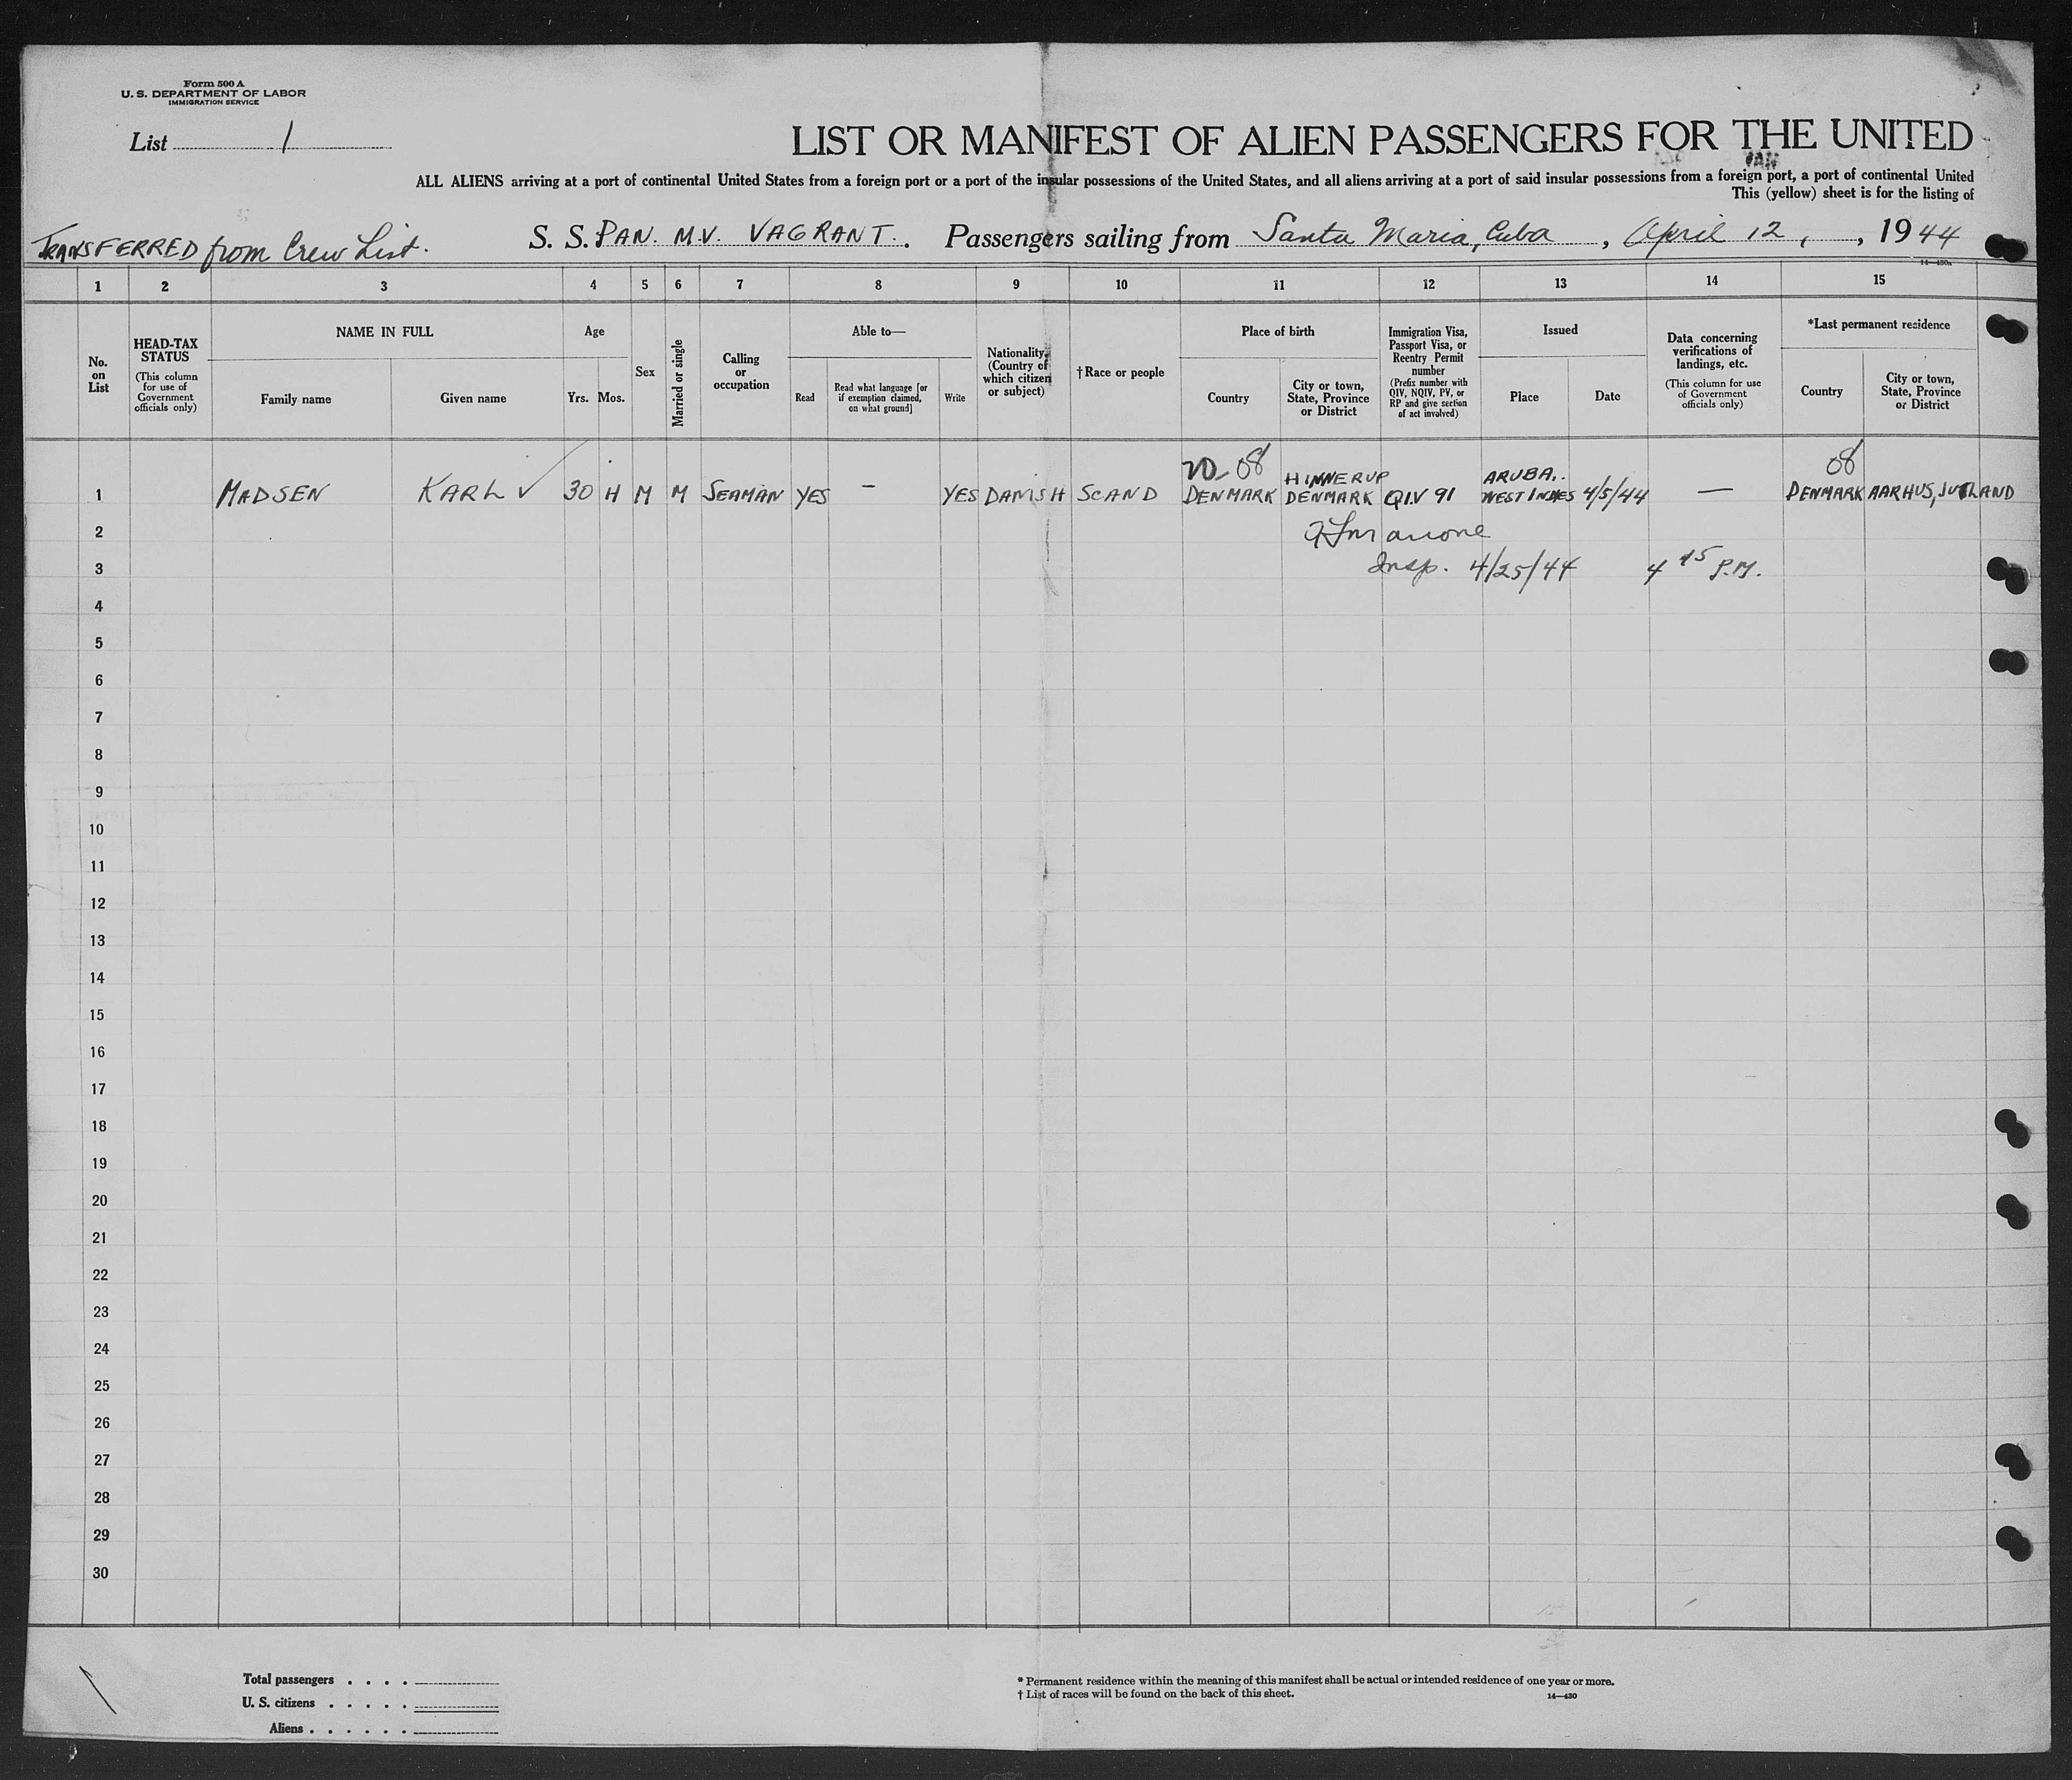 Form 500 A
U. S. DEPARTMENT OF LABOR
IMMIGRATION SERVICE
List 1
LIST OR MANIFEST OF ALIEN PASSENGERS FOR THE UNITED
ALL ALIENS arriving at a port of continental United States from a foreign port or a port of the insular possessions of the United States, and all aliens arriving at a port of said insular possessions from a foreign port, a port of continental United
This (yellow) sheet is for the listing of
TRANSFERRED from Crew List.
S. S. PAN. M.V. VAGRANT. Passengers sailing from Santa Maria, Cuba, April 12, 1944
14—430a
1 2 3 4 5 6 7 8 9 10 11 12 13 14 15
No. on List
HEAD-TAX STATUS
(This column for use of Government officials only)
NAME IN FULL
Family name Given name
Age
Yrs. Mos.
Sex
Married or single
Calling or occupation
Able to—
Read
Read what language [or if exemption claimed, on what ground]
Write
Nationality. (Country of which citizen or subject)
†Race or people
Place of birth
Country
City or town, State, Province or District
Immigration Visa, Passport Visa, or Reentry Permit number
(Prefix number with QIV, NQIV, PV, or RP and give section of act involved)
Issued
Place Date
Data concerning verifications of landings, etc.
(This column for use of Government officials only)
*Last permanent residence
Country
City or town, State, Province or District
08 08
HINNERUP ARUBA..
1 MADSEN KARL ✓ 30 4 M M SEAMAN YES — YES DANISH SCAND DENMARK DENMARK Q.I.V 91 WEST INDIES 4/5/44 — DENMARK AARHUS, JUTLAND
2
3 Insp. 4/25/44 4 45 P.M.
4
5
6
7
8
9
10
11
12
13
14
15
16
17
18
19
20
21
22
23
24
25
26
27
28
29
30
Total passengers . . . .
U. S. citizens . . . . .
Aliens . . . . . .
* Permanent residence within the meaning of this manifest shall be actual or intended residence of one year or more.
† List of races will be found on the back of this sheet.
14—430